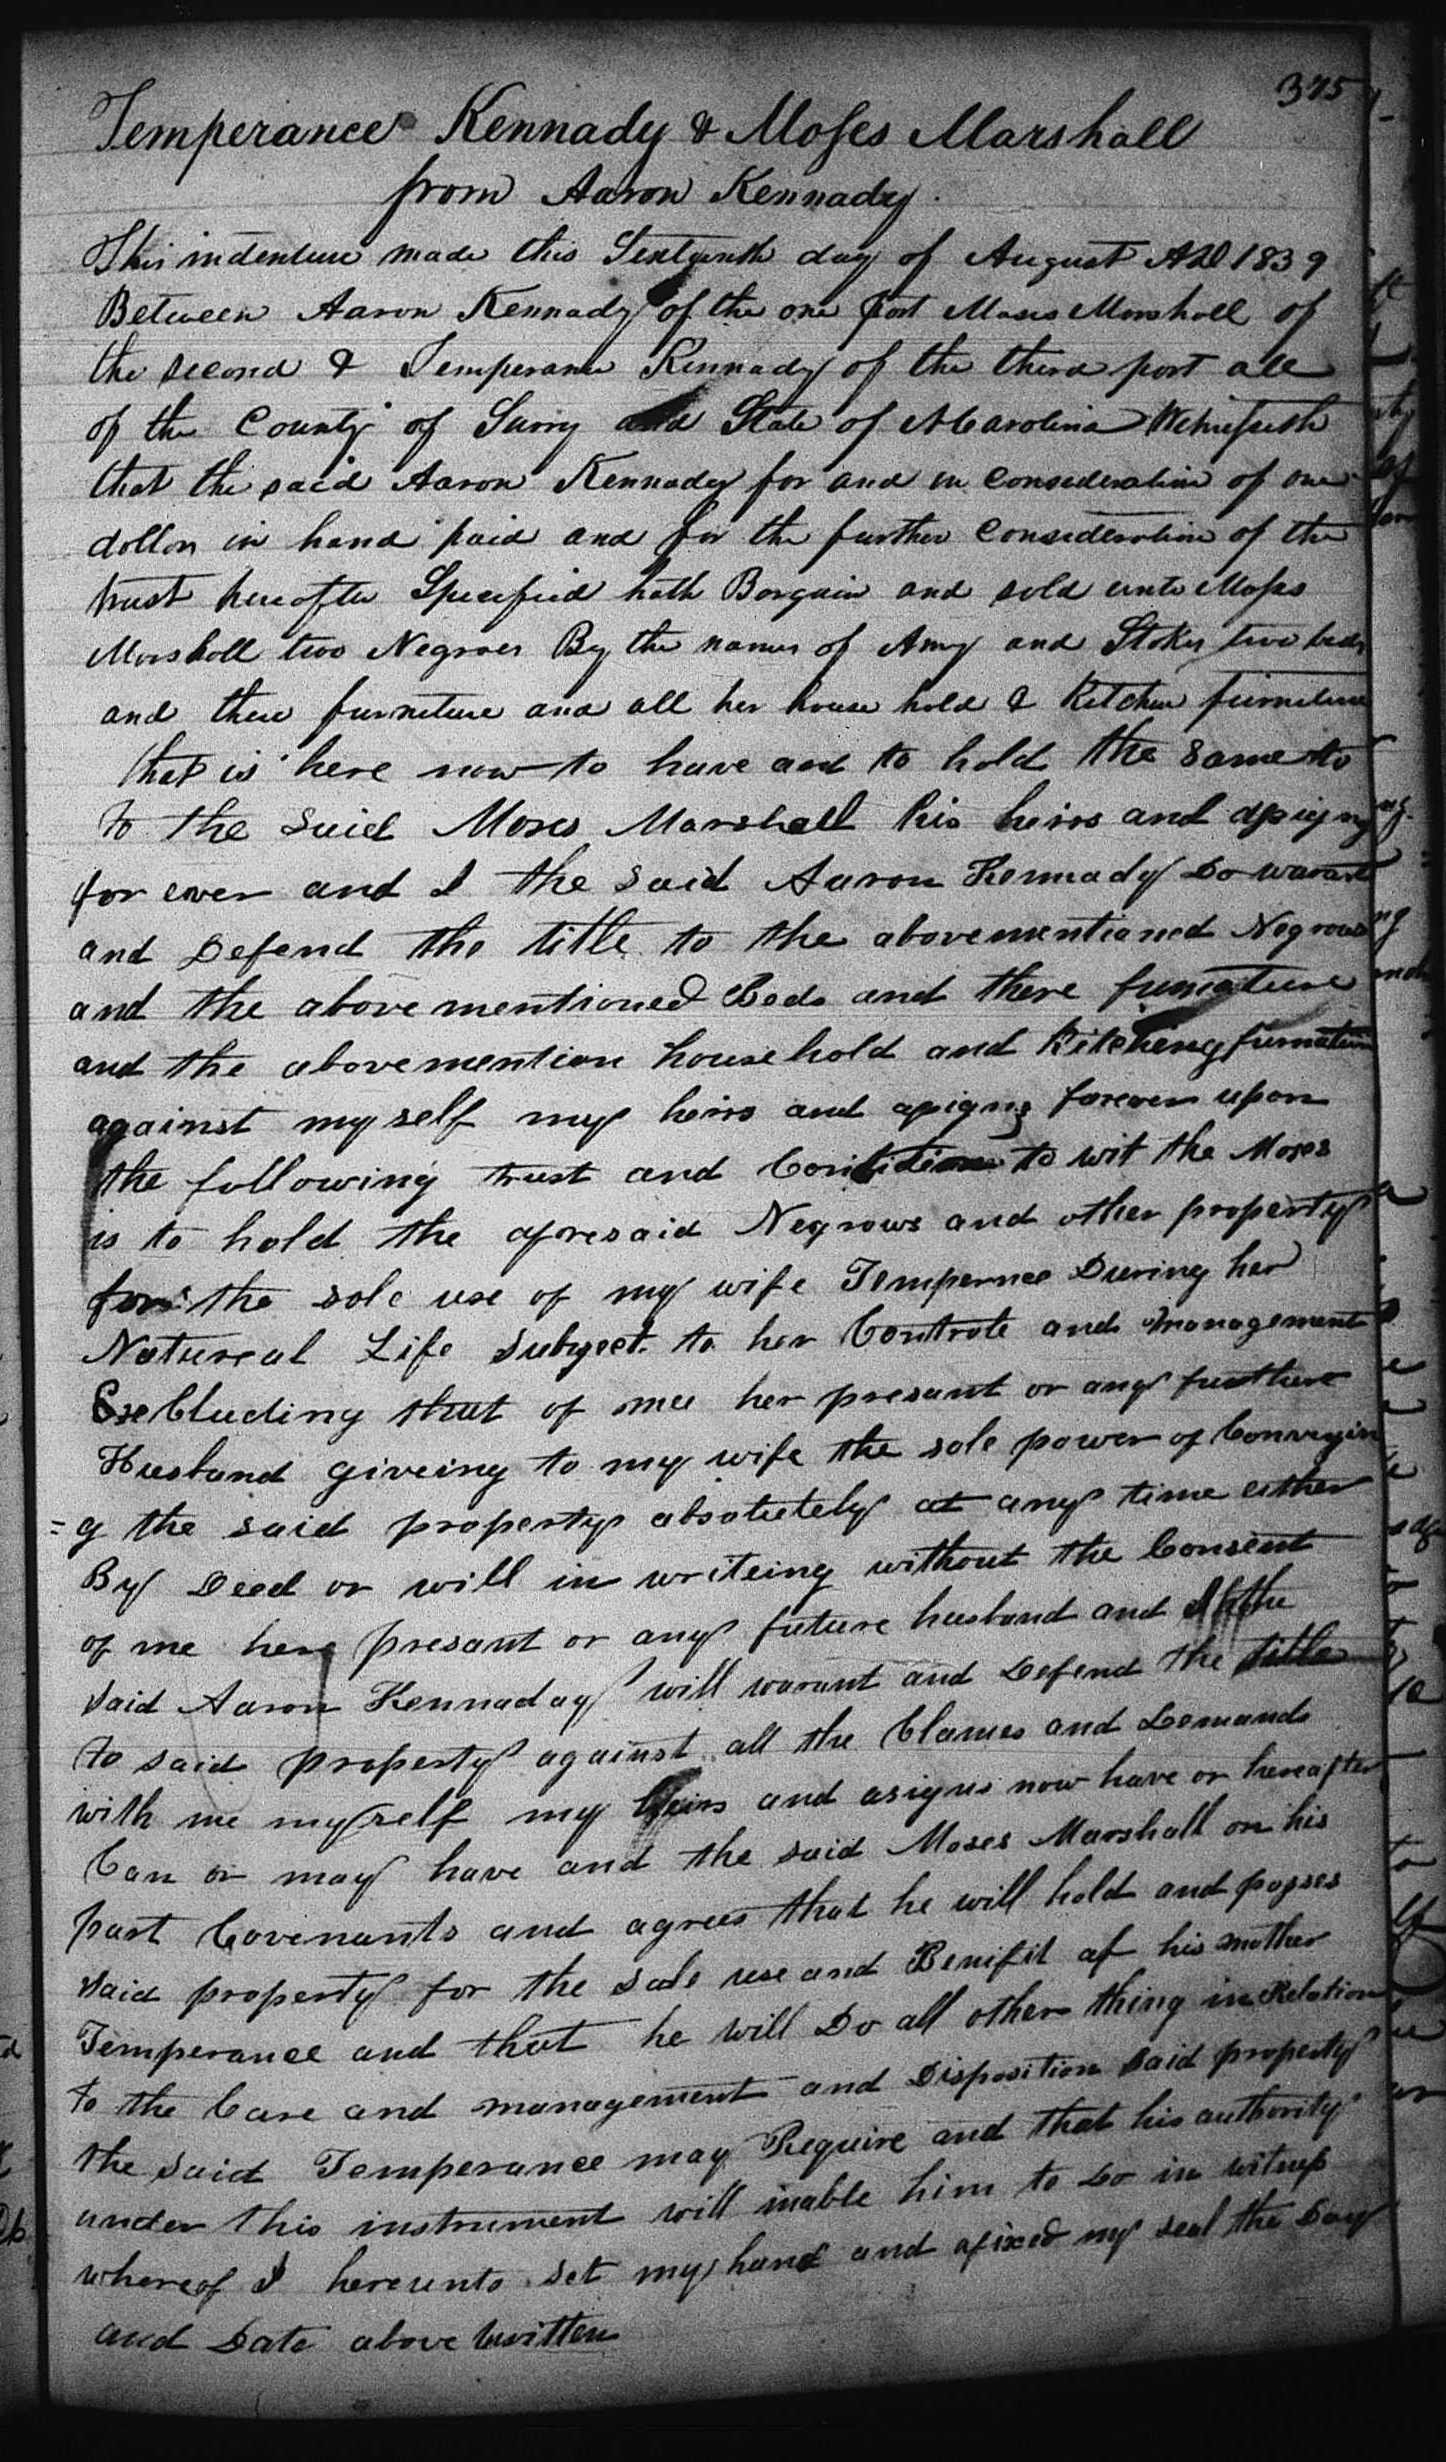 375
Temperance Kennady & Moses Marshall
from Aaron Kennady.
This indenture made this Sixteenth day of August AD 1839
Between Aaron Kennady of the one part Moses Marshall of
the second & Temperance Kennady of the third part all
of the County of Surry and State of N Carolina Witnesseth
that the said Aaron Kennady for and in Consideration of one
dollar in hand paid and for the further Consideration of the
trust hereafter Specified hath Bargain and sold unto Moses
Marshall two Negroes By the names of Amy and Stokes two beds
and there furneture and all her house hold & Kitchen furniture
that is here now to have and to hold the same to
to the said Moses Marshall his heirs and assigns
for ever and I the said Aaron Kennady Do warant
and Defend the title to the abovementioned Negrows
and the abovementioned Beds and there furnature
and the abovemention household and Kitching furnature
against myself my heirs and asigns forever upon
the following trust and Condition to wit the Moses
is to hold the aforesaid Negrows and other property
for the sole use of my wife Tempernce During her
Natureal Life Subject to her Controle and management
Excluding that of mee her presant or any further
Husband giveing to my wife the sole power of Conveyin
=g the said property absolutely at any time either
By Deed or will in writeing without the Consent
of me here presant or any future husband and I the
said Aaron Kennaday will warant and Defend the title
to said property against all the Clames and Demands
with me myself my heirs and asigns now have or hereafter
Can or may have and the said Moses Marshall on his
part Covenants and agrees that he will hold and posses
said property for the sole use and Benifit of his mother
Temperance and that he will Do all other thing in Relation
to the Care and management and Disposition said property
the said Temperance may Require and that his authority
under this instrument will inable him to Do in witness
whereof I hereunto set my hand and afixed my seal the Day
and Date above written